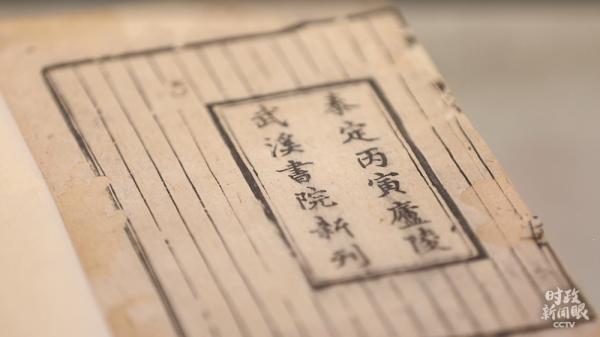 泰定丙寅廬陵
武溪書院新刋
时政
新闻眼
CCTV